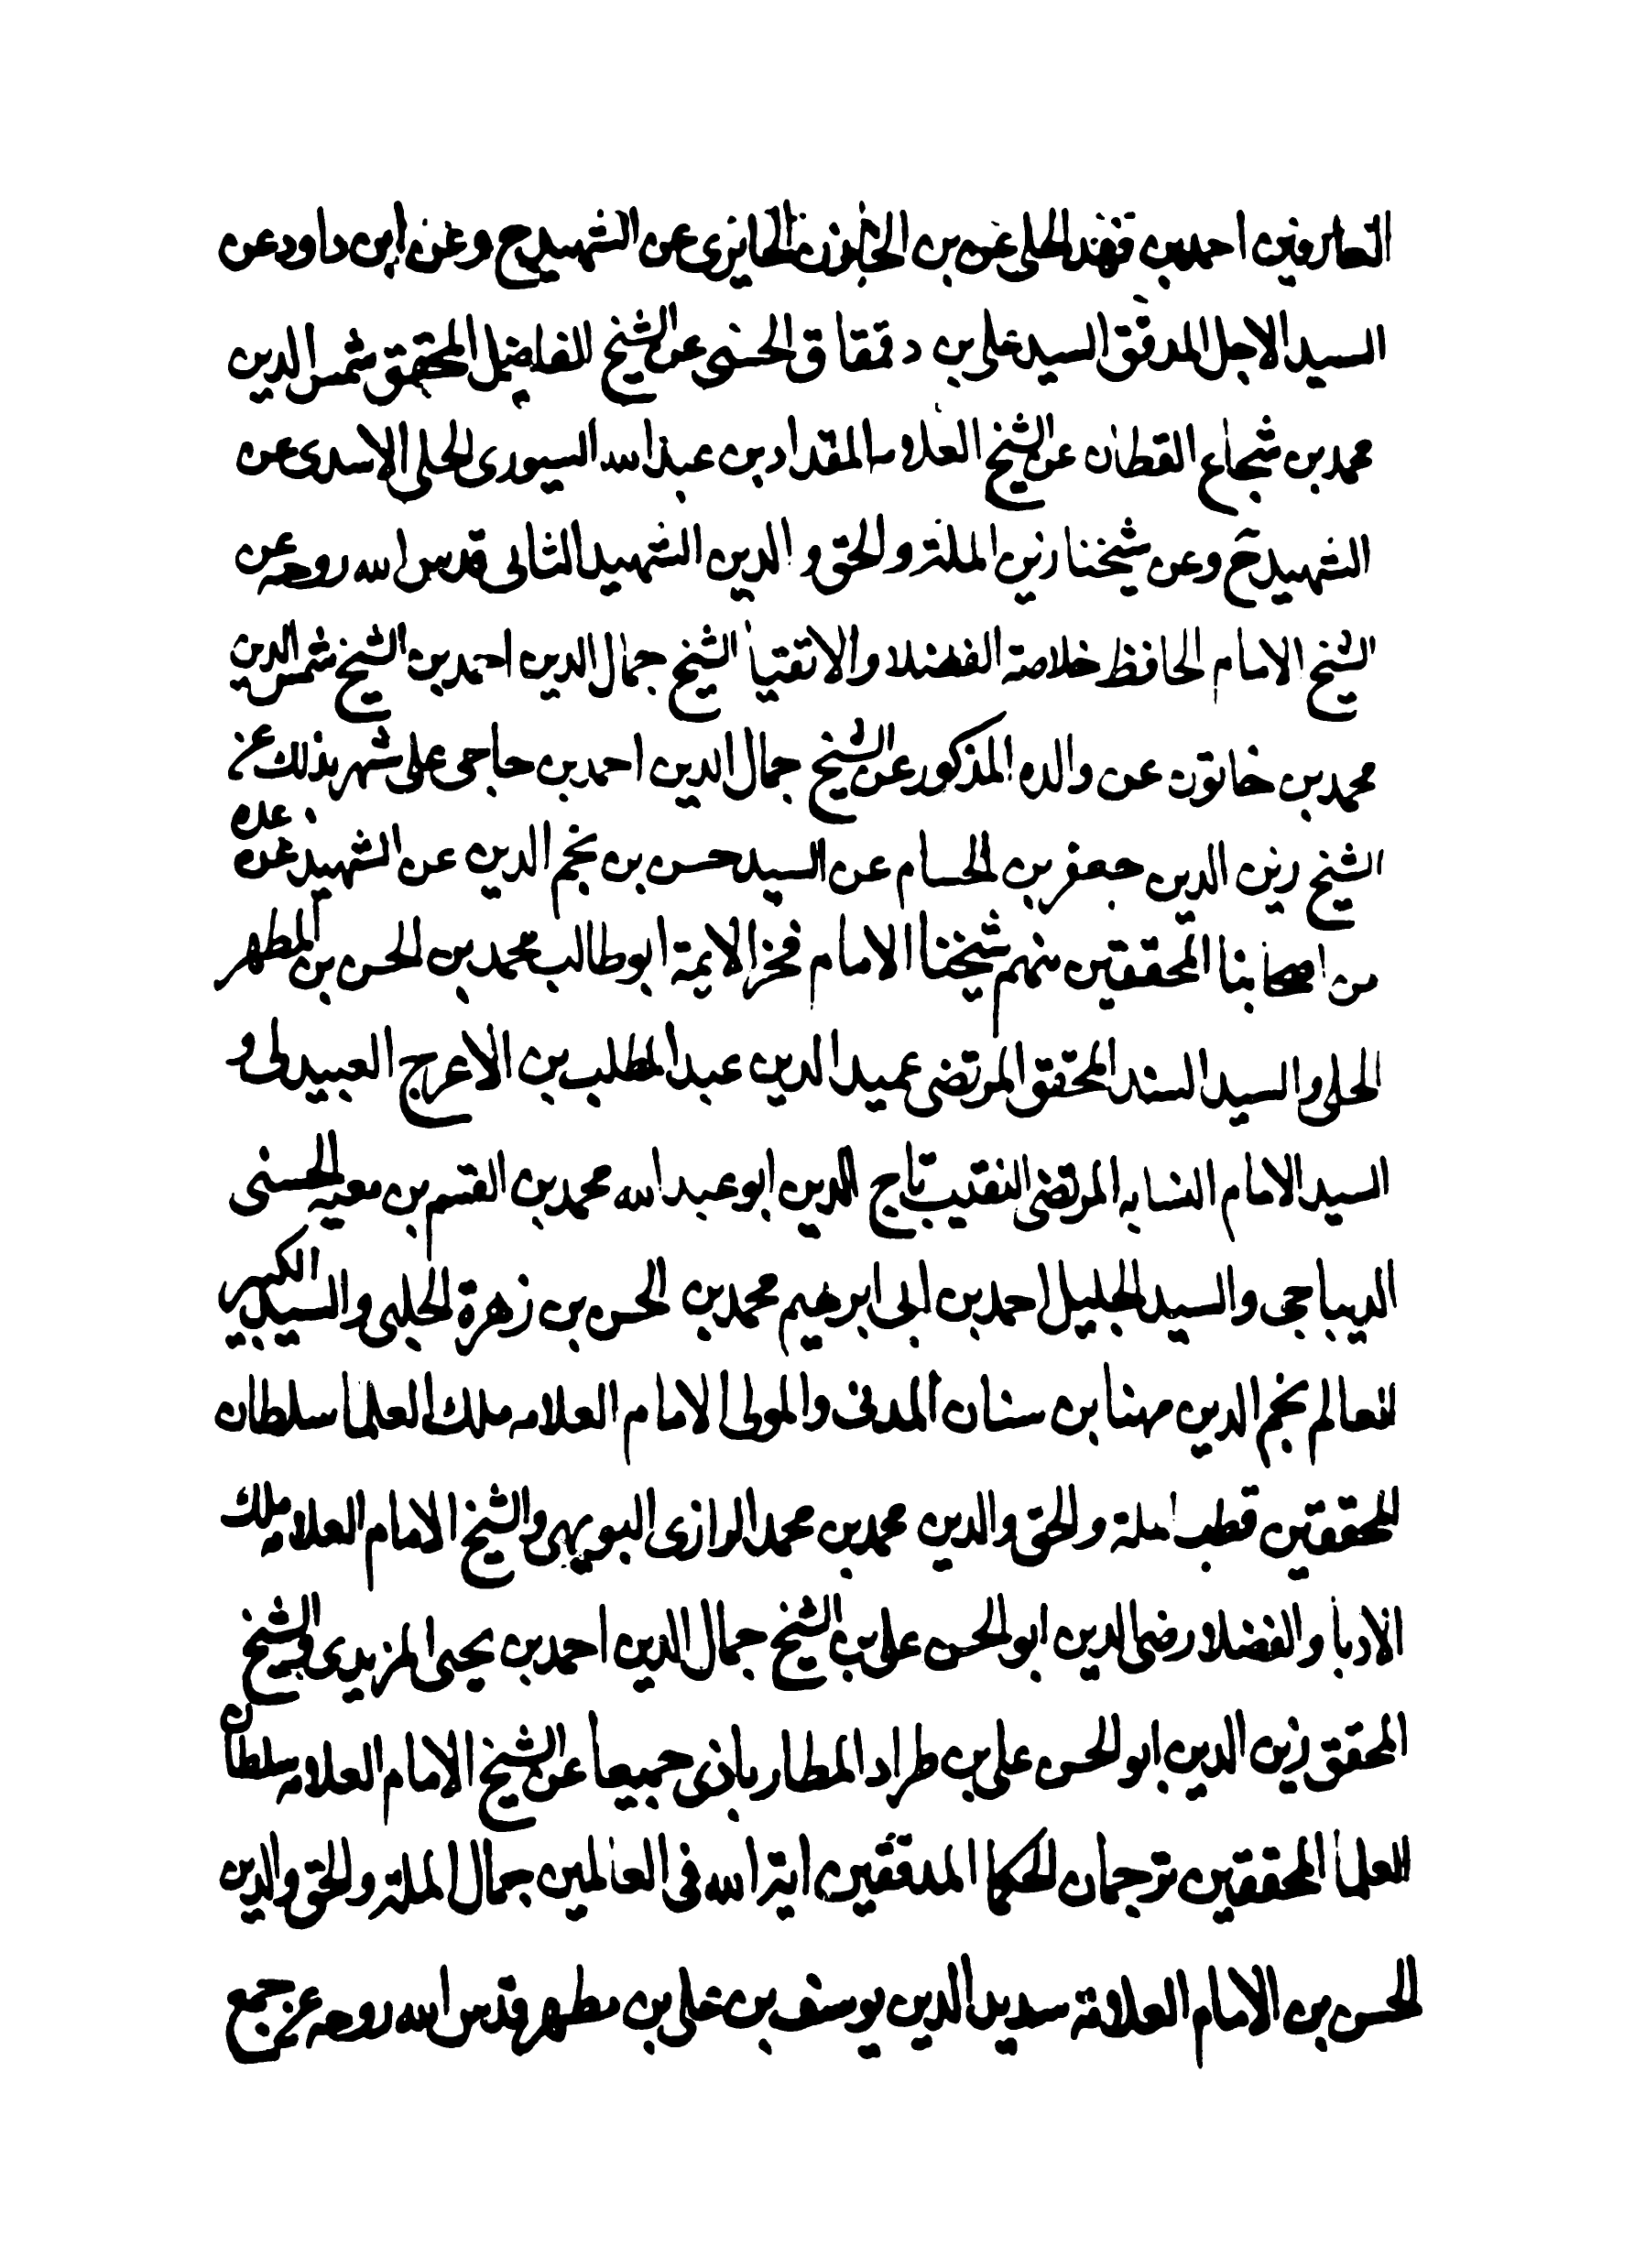 العارفين احمد بن فهد الحلي عن بن الخازن الحايري عن الشهيد ح وعن ابن داود عن
السيد الاجل المدقق السيد علي بن دقماق الحسني عن الشيخ الفاضل المحقق شمس الدين
محمد بن شجاع القطان عن الشيخ العلامه المقداد بن عبد الله السيوري الحلي الاسدي عن
الشهيد ح وعن شيخنا زين الملة والحق والدين الشهيد الثاني قدس الله روحه عن
الشيخ الامام الحافظ خلاصة الفضلا والاتقيا الشيخ جمال الدين احمد بن الشيخ شمس الدين
محمد بن خاتون عن والده المذكور عن الشيخ جمال الدين احمد بن حاجي علي شهر بذلك عن
الشيخ زين الدين جعفر بن الحسام عن السيد حسن بن نجم الدين عن الشهيد عن عده
من اصحابنا المحققين منهم شيخنا الامام فخر الايمة ابو طالب محمد بن الحسن بن المطهر
الحلي والسيد السند المحقق المرتضى عميد الدين عبد المطلب بن الاعرج العبيدلي و
السيد الامام النسابه المرتضى النقيب تاج الدين ابو عبد الله محمد بن القسم بن معيه الحسني
الديباجي والسيد الجليل احمد بن ابي ابرهيم محمد بن الحسن بن زهرة الحلبي والسيد الكبير
العالم نجم الدين مهنا بن سنان المدني والمولى الامام العلامه ملك العلما سلطان
المحققين قطب الملة والحق والدين محمد بن محمد الرازي البويهي والشيخ الامام العلامه ملك
الادبا والفضلا رضى الدين ابو الحسن علي بن الشيخ جمال الدين احمد بن يحيى المزيدي والشيخ
المحقق زين الدين ابو الحسن علي بن طراد المطارباذي جميعا عن الشيخ الامام العلامه سلطان
العلما المحققين ترجمان الحكما المدققين اية الله في العالمين جمال الملة والحق والدين
الحسن بن الامام العلامة سديد الدين يوسف بن علي بن مطهر قدس الله روحه عن جمع